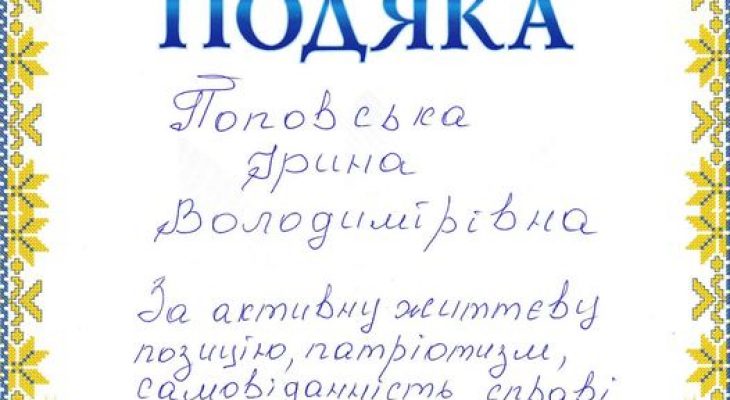 ПОДЯКА
Поповська
Ірина
Володимірівна
За активну життєву
позицію, патріотизм,
самовіданність справі